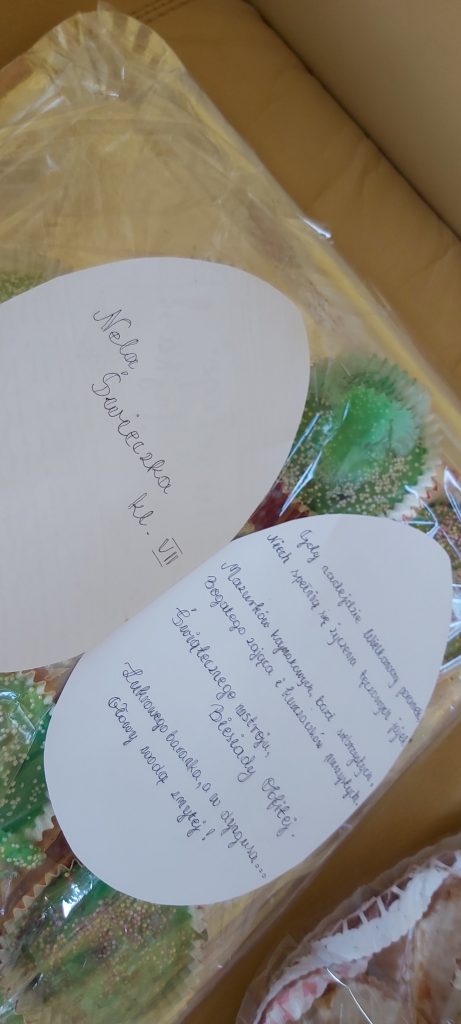 Nela
Świeczka
kl. VII
Gdy nadejdzie Wielkanocy poranek
Niech spełnią się życzenia tęczowych jajek
Mazurków kajmakowych, bazi srebrzystych,
Bogatego zająca i kurczaków puszystych.
Świątecznego nastroju,
Biesiady Obfitej.
Lukrowego baranka, a w dyngusa...
Głowy wodą zmytej!